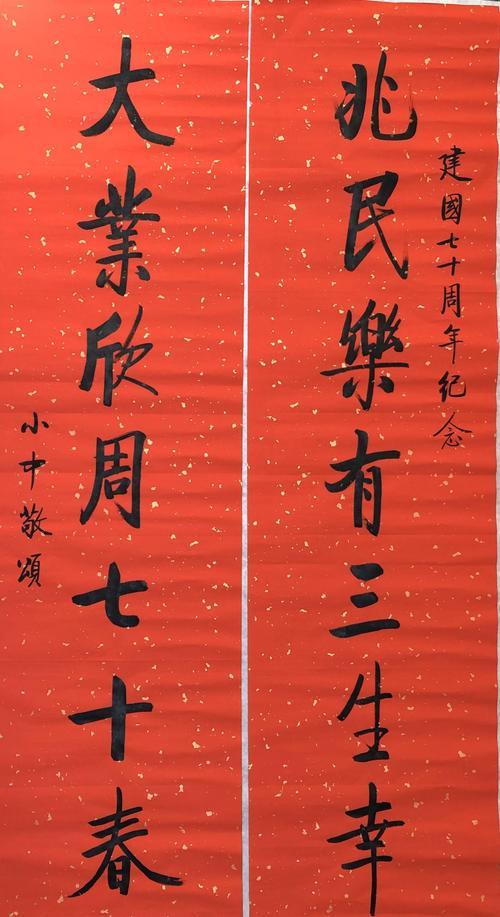 建國七十周年纪念
兆民樂有三生幸
大業欣周七十春
小中敬頌